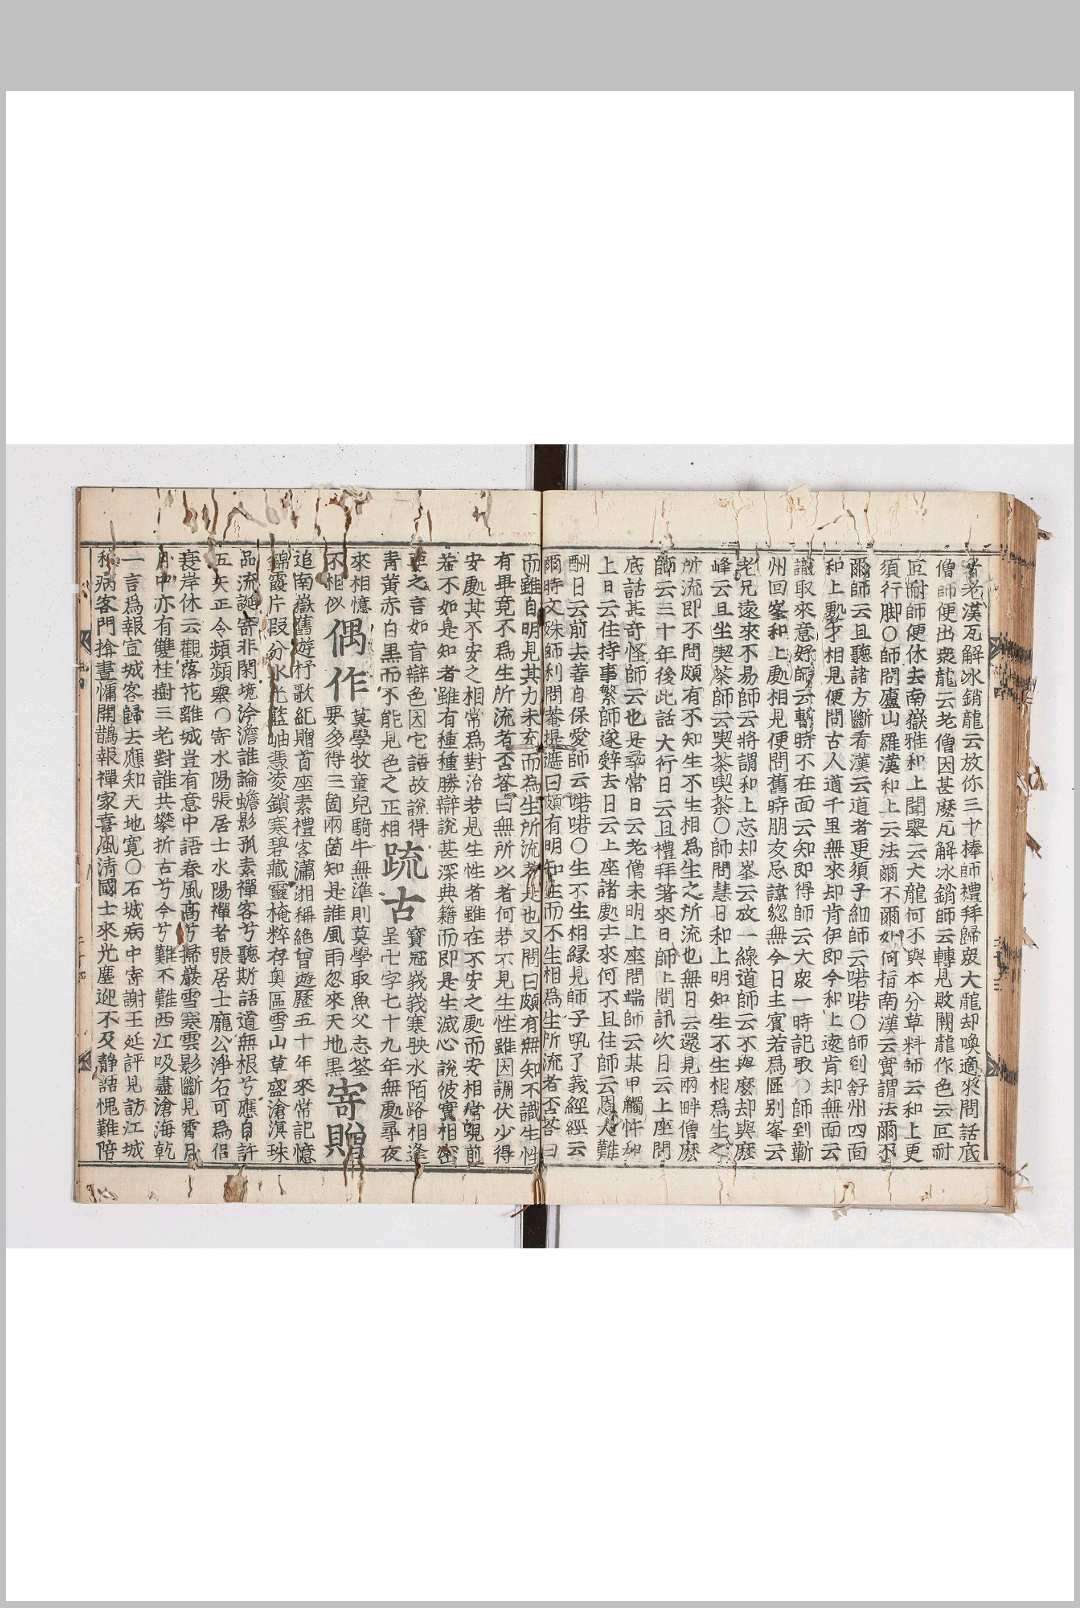 者老漢瓦解冰銷龍云放你三十棒師禮拜歸衆大龍却喚適來問話底
僧師便出衆龍云老僧因甚麽瓦解冰銷師云轉見敗闕龍作色云叵耐
叵耐師便休去南嶽雅和上聞擧云大龍何不與本分草料師云和上更
須行脚〇師問廬山羅漢和上云法爾不爾如何指南漢云實謂法爾不
爾師云且聽諸方斷看漢云道者更須子細師云喏喏〇師到舒州四面
和上處才相見便問古人道千里無來却肯伊即今和上遠肯却無面云
識取來意好師云暫時不在面云知即得師云大衆一時記取〇師到蘄
州回峯和上處相見便問舊時朋友忌諱緫無今日主賓若為區別峯云
老兄遠來不易師云將謂和上忘却峯云放一線道師云不與麽却與麽
峰云且坐喫茶師云喫茶喫茶〇師問慧日和上明知生不生相爲生之
所流即不問頗有不知生不生相爲生之所流也無日云還見兩畔僧麽
師云三十年後此話大行日云且禮拜著來日師上問訊次日云上座問
底話甚奇怪師云也是尋常日云老僧未明上座問端師云某甲觸忤和
上日云住持事繁師遂辭去日云上座諸處去來何不且住師云恩大難
酬日云前去善自保愛師云喏喏〇生不生相緣見師子吼了義經經云
爾時文殊師利問菴提遮曰頗有明知生而不生相爲生所流者不荅曰
而雖自明見其力未充而為生所流者是也又問曰頗有無知不識生性
有畢竟不爲生所流者否荅曰無所以者何若不見生性雖因調伏少得
安處其不安之相常爲對治若見生性者雖在不安之處而安相常現前
若不如是知者雖有種種勝辯說甚深典籍而即是生滅心說彼實相密
要之言如盲辯色因它語故說得
青黃赤白黑而不能見色之正相 疏古 呈七字七十九年無處尋夜
來相憶 寶冠峩峩寒映水陌路相逢
不相似 偶作 莫學牧童兒騎牛無準則莫學取魚父志筌
要多得三箇兩箇知是誰風雨忽來天地黑 寄贈
追南嶽舊遊杼歌紀贈首座素禮客瀟湘稱絕曾遊歷五十年來常記憶
錦霞片段分水光籃岫憑凌鎖寒碧藏靈掩粹存奧區雪山草盛滄溟珠
品流誕寄非閑境泠澹誰論蟾影孤素禪客兮聽斯語道無根兮應自許
五天正令頻頻擧〇寄水陽張居士水陽禪者張居士龐公淨名可爲侶
長岸休云觀落花離城豈有意中語春風高兮掃巖雪寒雲影斷見霄月
月中亦有雙桂樹三老對誰共攀折古兮今兮難不難西江吸盡滄海乾
一言爲報宣城客歸去應知天地寬〇石城病中寄謝王延評見訪江城
秋病客門掩晝慵開鵲報禪家喜風清國士來光塵迎不及靜話愧難陪